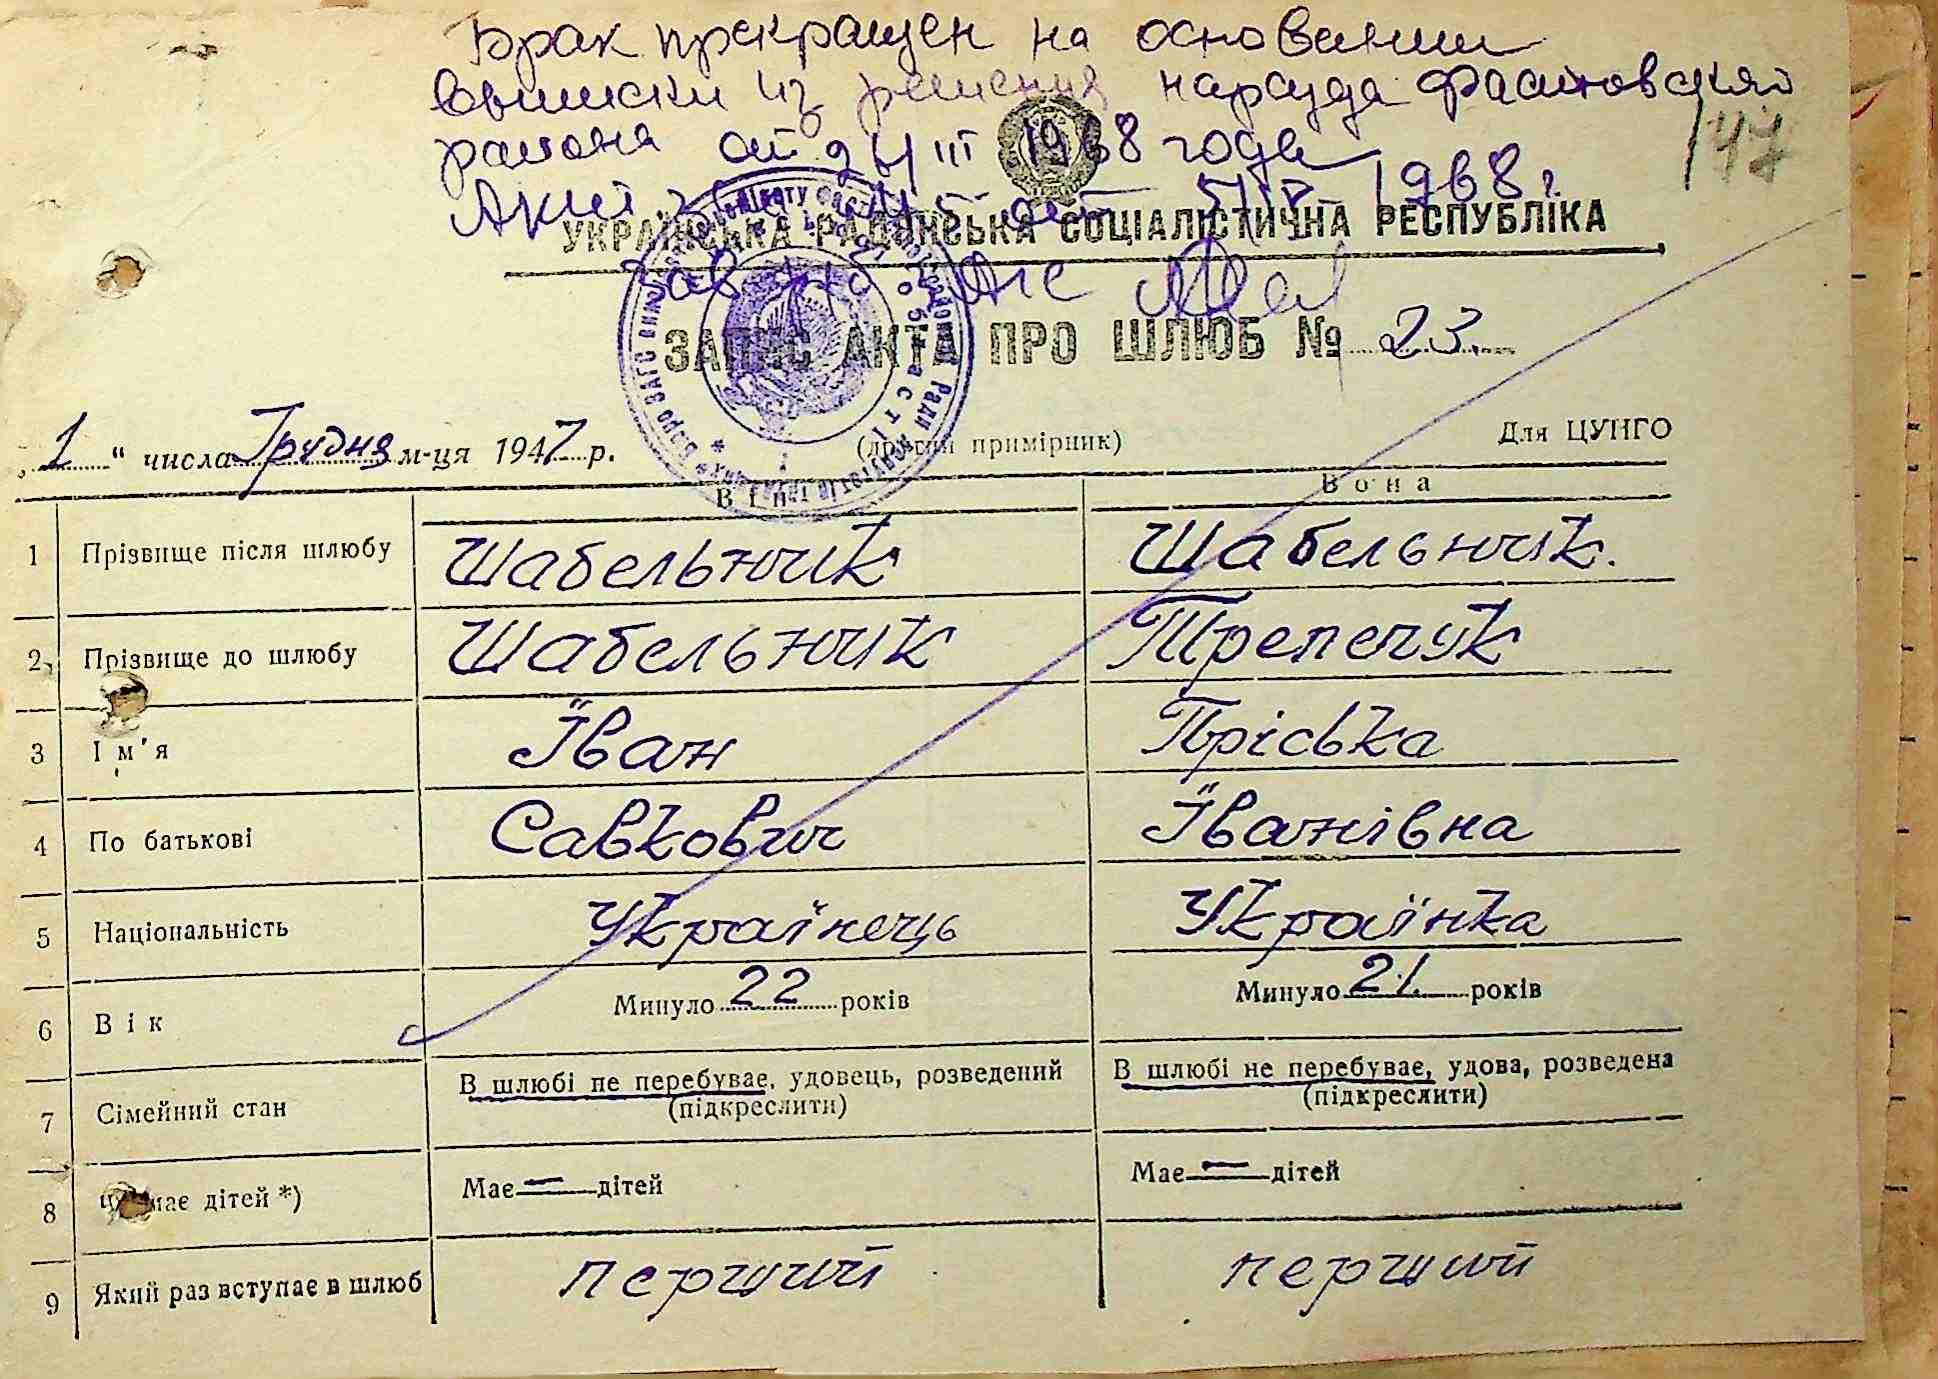 Брак прекращен на основании
выписки из решения нарсуда Фастовского
района от 24 III 1968 года
Акт 5/IV 1968 г.
147
УКРАЇНСЬКА РАДЯНСЬКА СОЦІАЛІСТИЧНА РЕСПУБЛІКА
Зав
ЗАПИС АКТА ПРО ШЛЮБ № 23.
„1“ числа Грудня м-ця 1947 р.
(другий примірник)
Для ЦУНГО
Він Вона
1 Прізвище після шлюбу Шабельник Шабельник.
2 Прізвище до шлюбу Шабельник Трепечук
3 Ім'я Іван Пріська
4 По батькові Савкович Іванівна
5 Національність Українець Українка
6 Вік Минуло 22 років Минуло 21. років
7 Сімейний стан В шлюбі не перебуває, удовець, розведений В шлюбі не перебуває, удова, розведена
(підкреслити) (підкреслити)
8 має дітей *) Має — дітей Має — дітей
9 Який раз вступає в шлюб перший перший